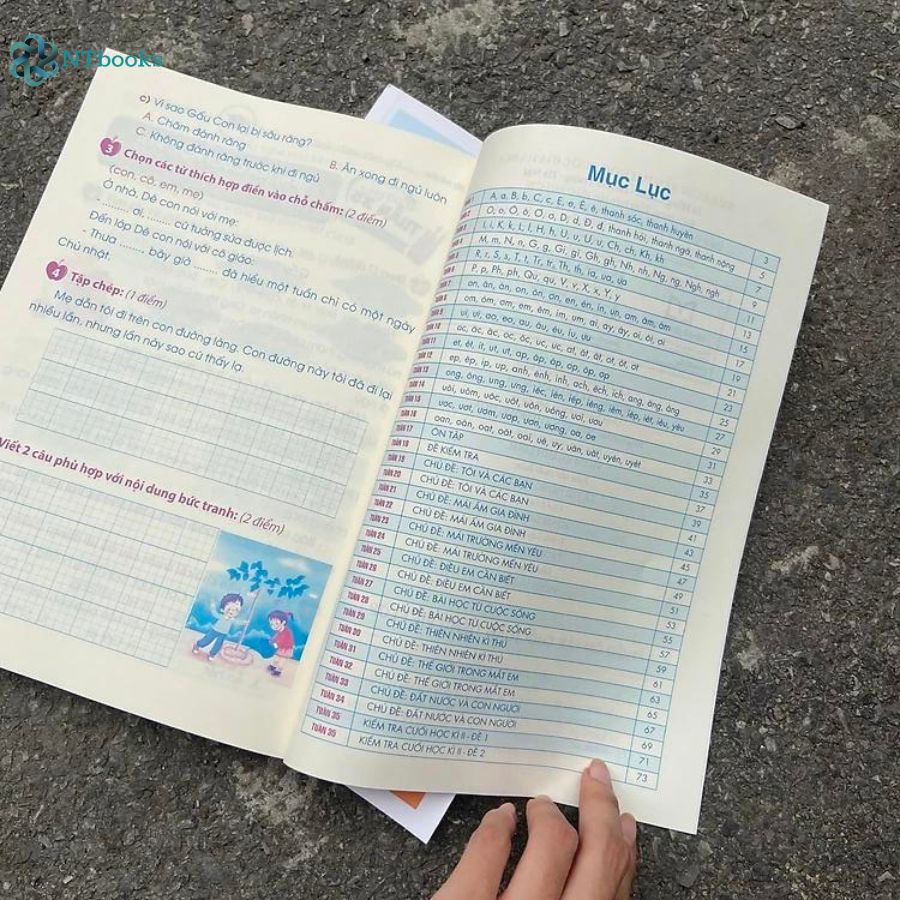 NTbooks
c) Vì sao Gấu Con lại bị sâu răng?
A. Chăm đánh răng
B. Ăn xong đi ngủ luôn
C. Không đánh răng trước khi đi ngủ
3 Chọn các từ thích hợp điền vào chỗ chấm: (2 điểm)
(con, cô, em, mẹ)
Ở nhà, Dê con nói với mẹ:
- ........ ơi, ........ cứ tưởng sữa được lịch.
Đến lớp Dê con nói với cô giáo:
- Thưa ........ bây giờ ........ đã hiểu một tuần chỉ có một ngày
Chủ nhật.
4 Tập chép: (1 điểm)
Mẹ dẫn tôi đi trên con đường làng. Con đường này tôi đã đi lại
nhiều lần, nhưng lần này sao cứ thấy lạ.
Viết 2 câu phù hợp với nội dung bức tranh: (2 điểm)
Mục Lục
A, a, B, b, C, c, E, e, Ê, ê, thanh sắc, thanh huyền 3
TUẦN 2 O, o, Ô, ô, Ơ, ơ, D, d, Đ, đ, thanh hỏi, thanh ngã, thanh nặng 5
TUẦN 3 I, i, K, k, L, l, H, h, U, u, Ư, ư, Ch, ch, Kh, kh 7
TUẦN 4 M, m, N, n, G, g, Gi, gi, Gh, gh, Nh, nh, Ng, ng, Ngh, ngh 9
TUẦN 5 R, r, S, s, T, t, Tr, tr, Th, th, ia, ua, ưa 11
TUẦN 6 P, p, Ph, ph, Qu, qu, V, v, X, x, Y, y 13
TUẦN 7 an, ăn, ân, on, ôn, ơn, en, ên, in, un, am, ăm, âm 15
TUẦN 8 om, ôm, ơm, em, êm, im, um, ai, ay, ây, oi, ôi, ơi 17
TUẦN 9 ui, ưi, ao, eo, au, âu, êu, iu, ưu 19
TUẦN 10 ac, ăc, âc, oc, ôc, uc, ưc, at, ăt, ât, ot, ôt, ơt 21
TUẦN 11 et, êt, it, ut, ưt, ap, ăp, âp, op, ôp, ơp 23
TUẦN 12 ep, êp, ip, up, anh, ênh, inh, ach, êch, ich, ang, ăng, âng 25
TUẦN 13 ong, ông, ung, ưng, iêc, iên, iêp, iêng, iêm, iêp, iêt, iêu, yêu 27
TUẦN 14 uôi, uôm, uôc, uôt, uôn, uông, ươi, ươu 29
TUẦN 15 ươc, ươt, ươm, ươp, ươn, ương, oa, oe 31
TUẦN 16 oan, oăn, oat, oăt, oai, uê, uy, uân, uât, uyên, uyêt 33
TUẦN 17 ÔN TẬP 35
TUẦN 18 ĐỀ KIỂM TRA 37
TUẦN 19 CHỦ ĐỀ: TÔI VÀ CÁC BẠN 39
TUẦN 20 CHỦ ĐỀ: TÔI VÀ CÁC BẠN 41
TUẦN 21 CHỦ ĐỀ: MÁI ẤM GIA ĐÌNH 43
TUẦN 22 CHỦ ĐỀ: MÁI ẤM GIA ĐÌNH 45
TUẦN 23 CHỦ ĐỀ: MÁI TRƯỜNG MẾN YÊU 47
TUẦN 24 CHỦ ĐỀ: MÁI TRƯỜNG MẾN YÊU 49
TUẦN 25 CHỦ ĐỀ: ĐIỀU EM CẦN BIẾT 51
TUẦN 26 CHỦ ĐỀ: ĐIỀU EM CẦN BIẾT 53
TUẦN 27 CHỦ ĐỀ: BÀI HỌC TỪ CUỘC SỐNG 55
TUẦN 28 CHỦ ĐỀ: BÀI HỌC TỪ CUỘC SỐNG 57
TUẦN 29 CHỦ ĐỀ: THIÊN NHIÊN KÌ THÚ 59
TUẦN 30 CHỦ ĐỀ: THIÊN NHIÊN KÌ THÚ 61
TUẦN 31 CHỦ ĐỀ: THẾ GIỚI TRONG MẮT EM 63
TUẦN 32 CHỦ ĐỀ: THẾ GIỚI TRONG MẮT EM 65
TUẦN 33 CHỦ ĐỀ: ĐẤT NƯỚC VÀ CON NGƯỜI 67
TUẦN 34 CHỦ ĐỀ: ĐẤT NƯỚC VÀ CON NGƯỜI 69
TUẦN 35 KIỂM TRA CUỐI HỌC KÌ II - ĐỀ 1 71
TUẦN 35 KIỂM TRA CUỐI HỌC KÌ II - ĐỀ 2 73